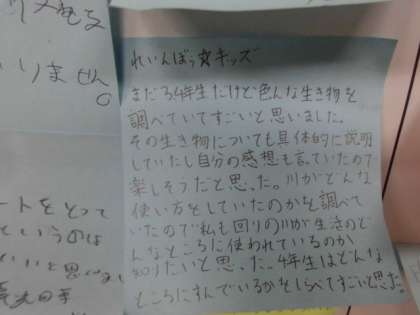 りメモる
いりません。
れいんぼぅ☆キッズ
まだ4年生だけど色んな生き物を
調べていてすごいと思いました。
その生き物についても具体的に説明
していたし自分の感想も言っていたので
楽しそうだと思った。川がどんな
使い方をしていたのかを調べて
いたので私も回りの川が生活のど
んなところに使われているのか
知りたいと思った。4年生はどんな
ところにすんでいるかをしらべてすごいと思った。
ートをとって
というのは
いいと思いまし